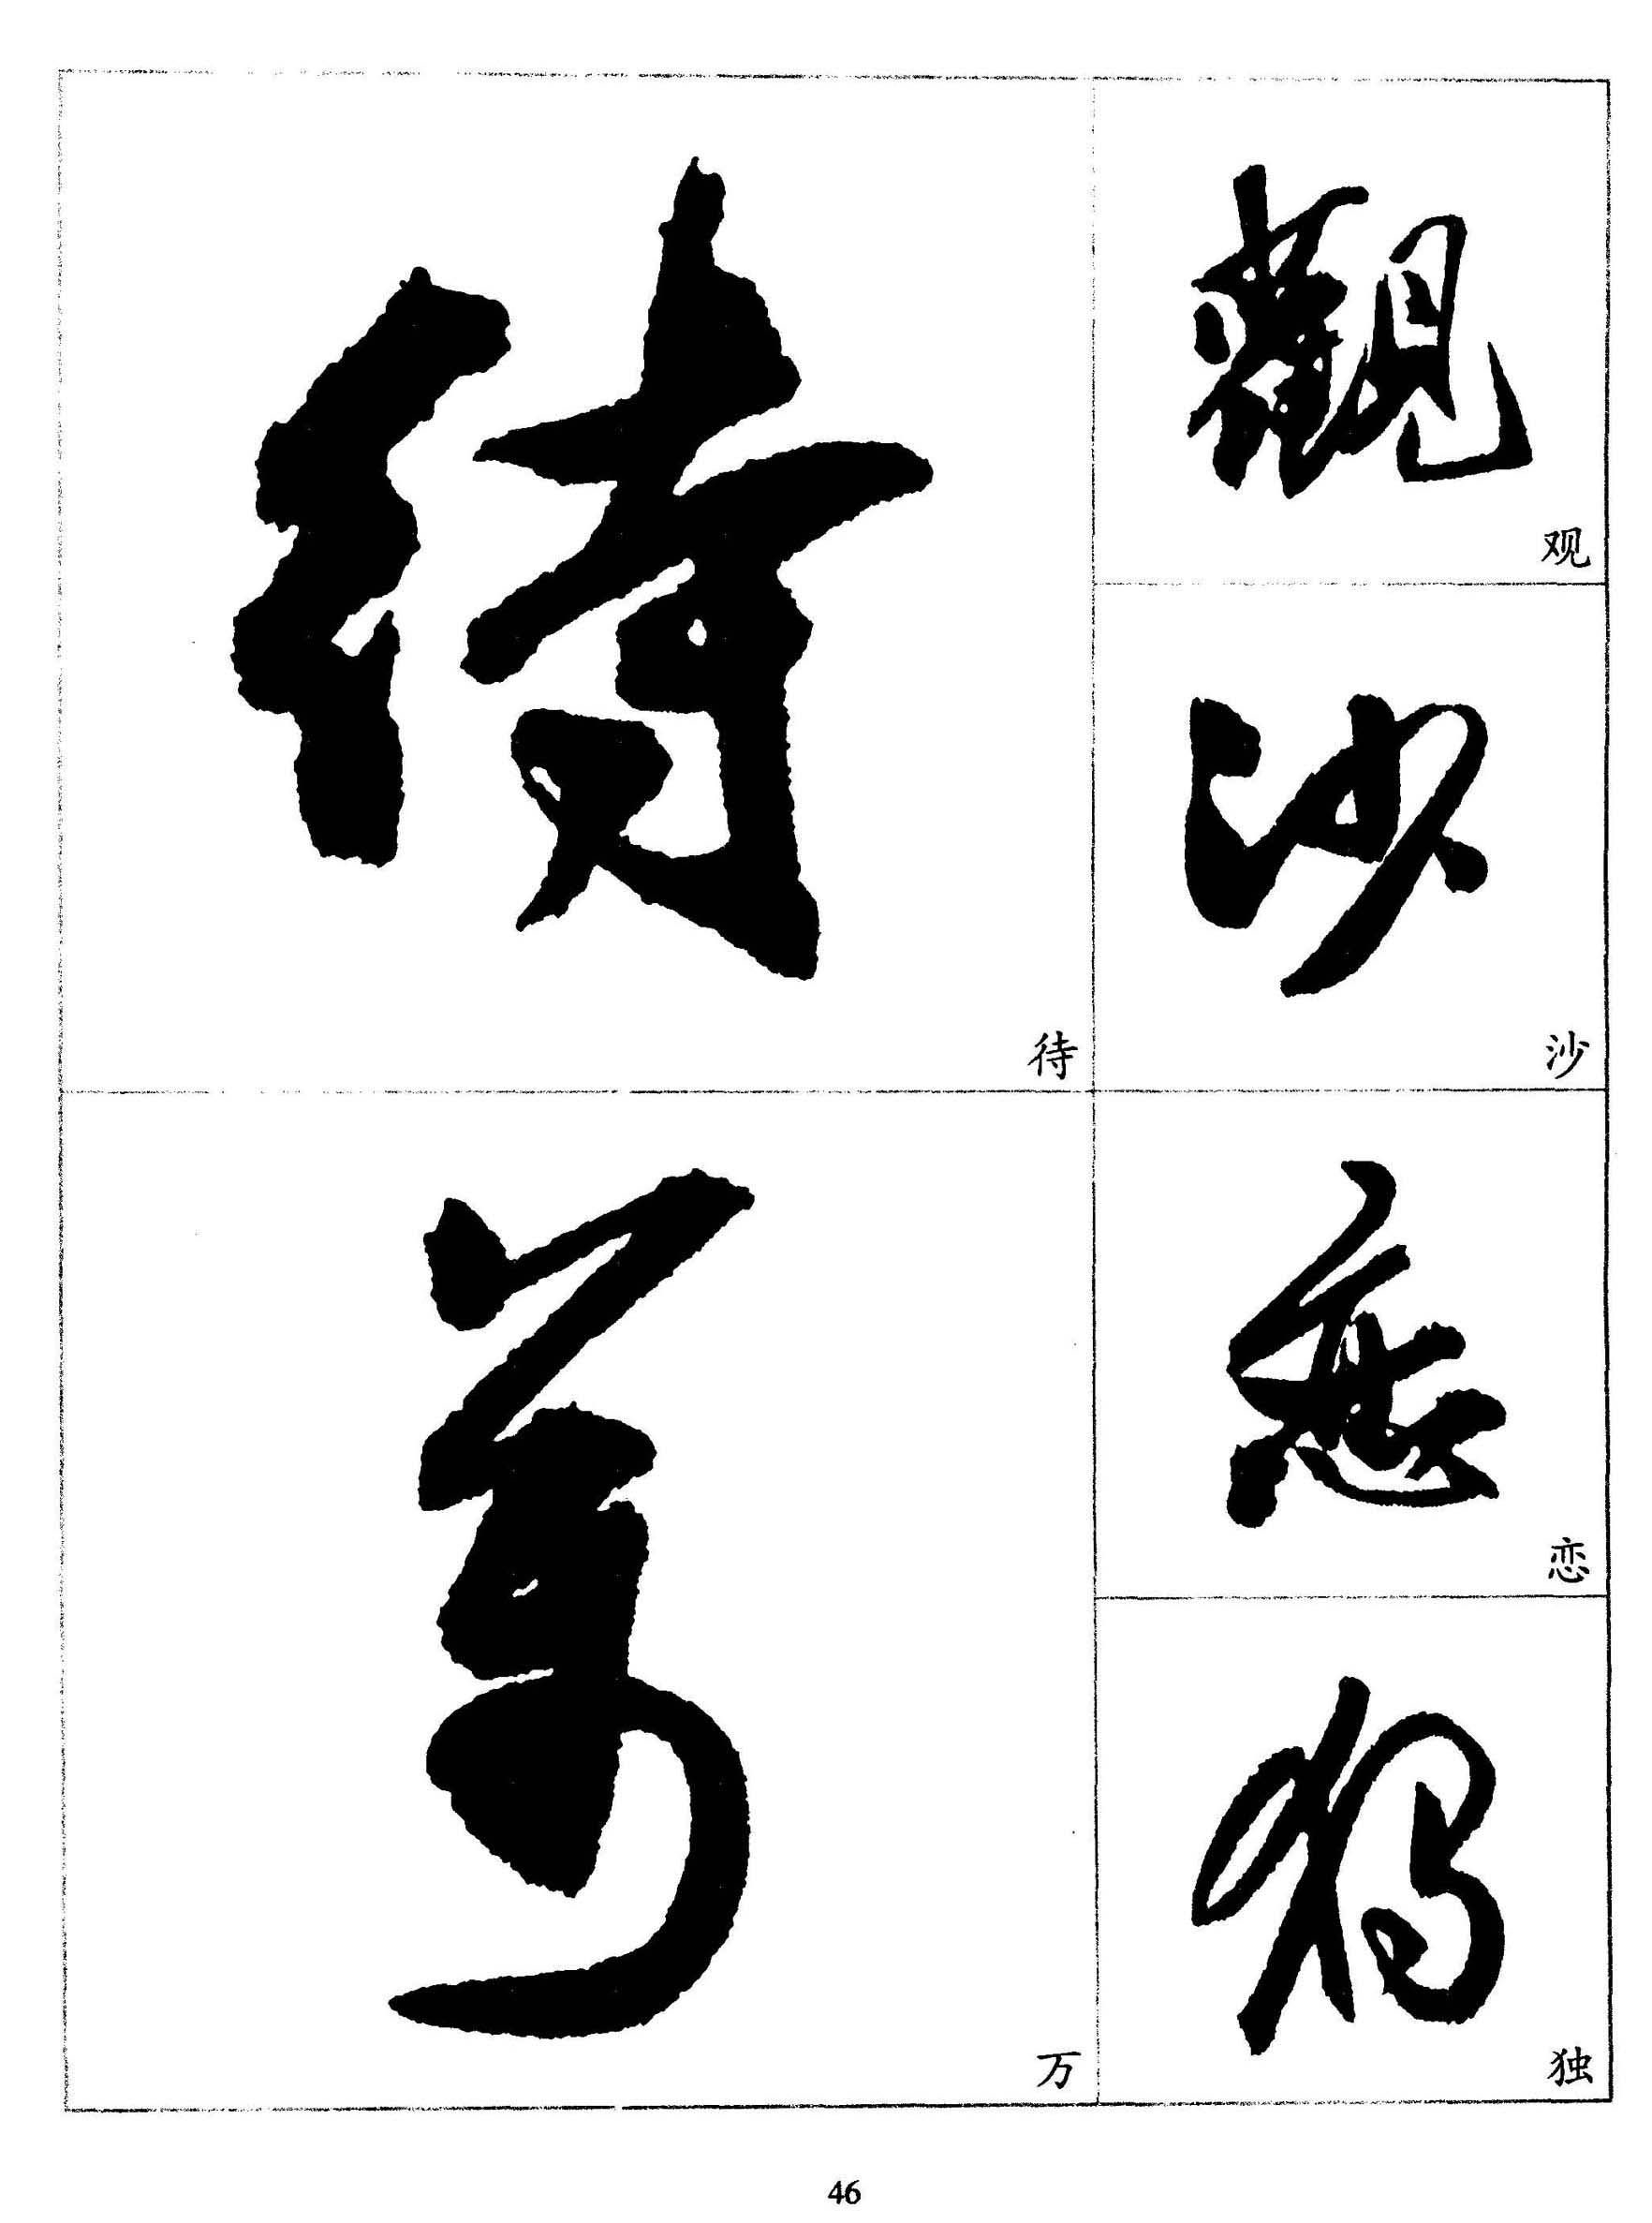 觀
观
沙
沙
戀
恋
獨
独
待
待
萬
万
46